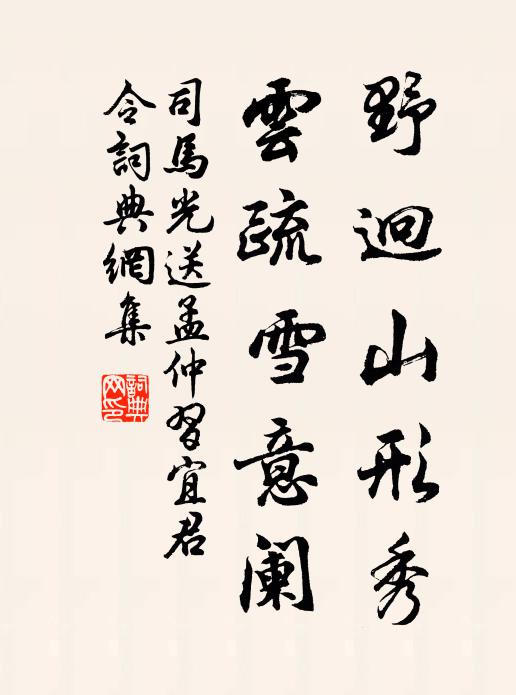 野迥山形秀
雲疏雪意阑
司馬光送孟仲習宜君
令詞典網集
詞典
网印